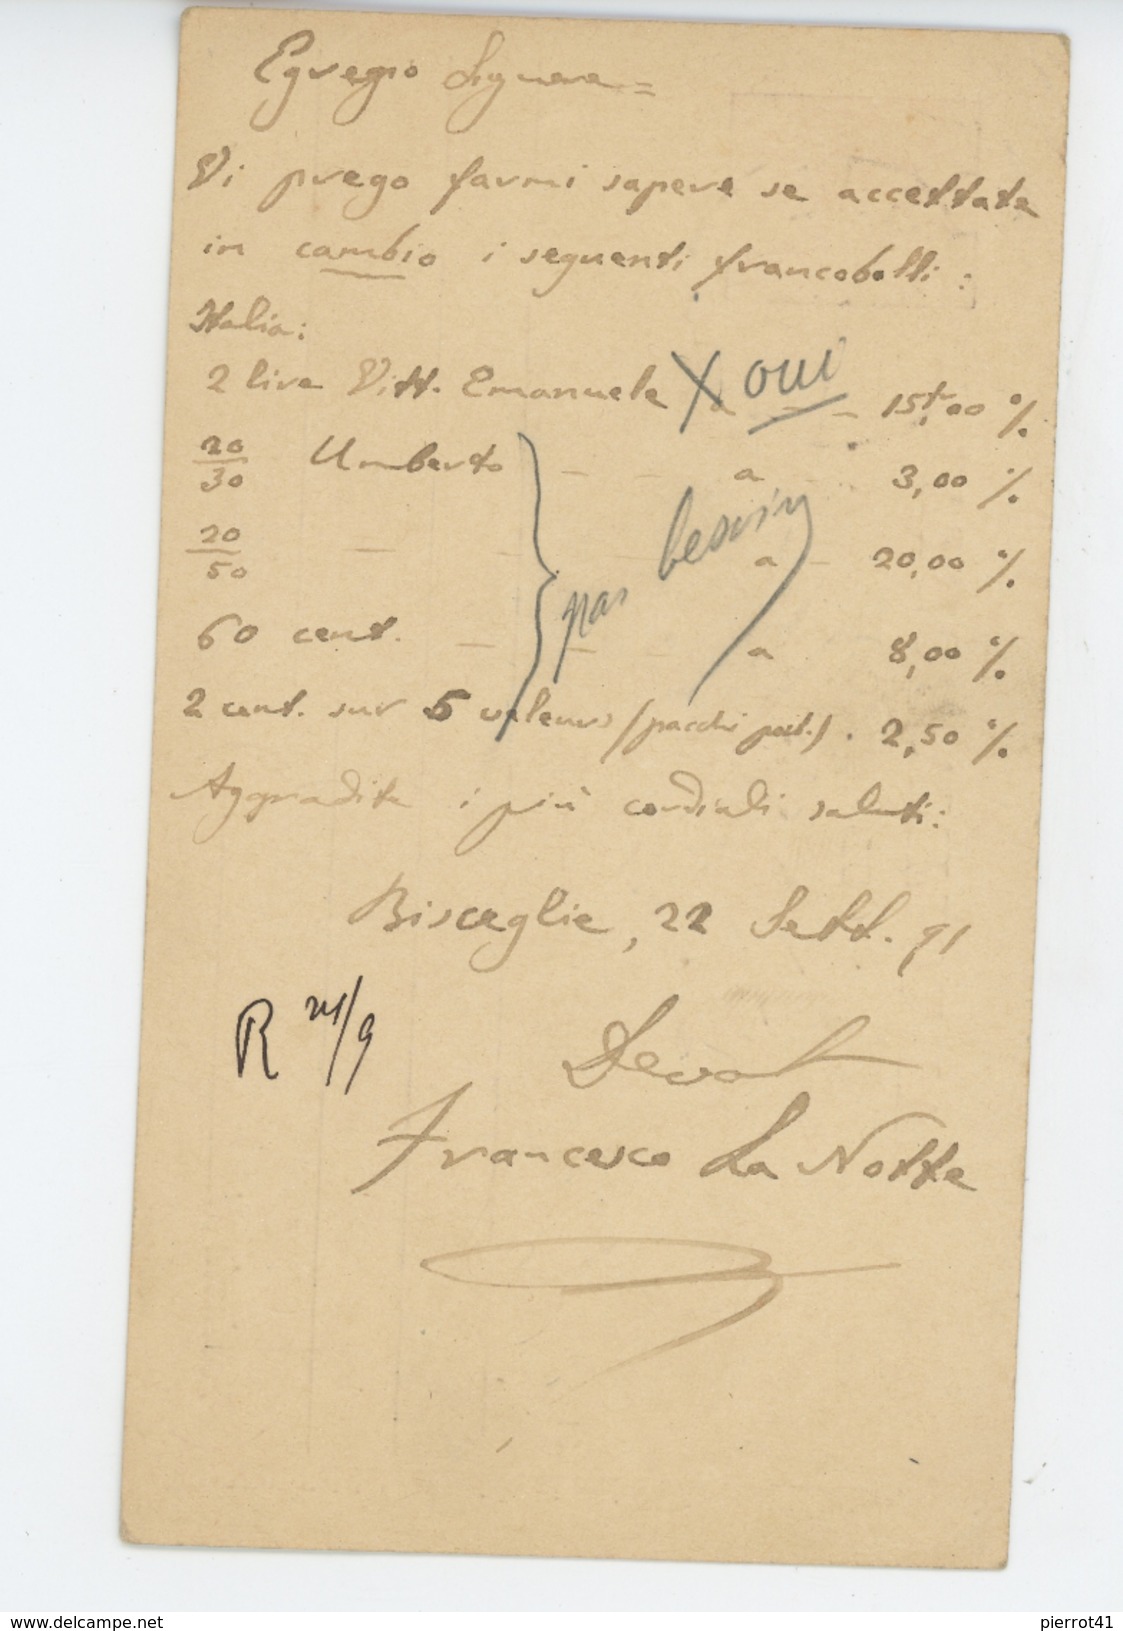 Egregio Signore =
Vi prego farmi sapere se accettate
in cambio i seguenti francobolli :
Italia :
2 lire Vitt. Emanuele X a oui — 15f,00 %
20/30 Umberto — — a — 3,00 %
20/50 — — — a — 20,00 %
pas besoin
60 cent. — — — a 8,00 %
2 cent. sur 5 valeurs (pacchi post.) . 2,50 %
Aggradite i più cordiali saluti :
Bisceglie, 22 Sett. 91
R 24/9
Devot
Francesco La Notte
www.delcampe.net
pierrot41